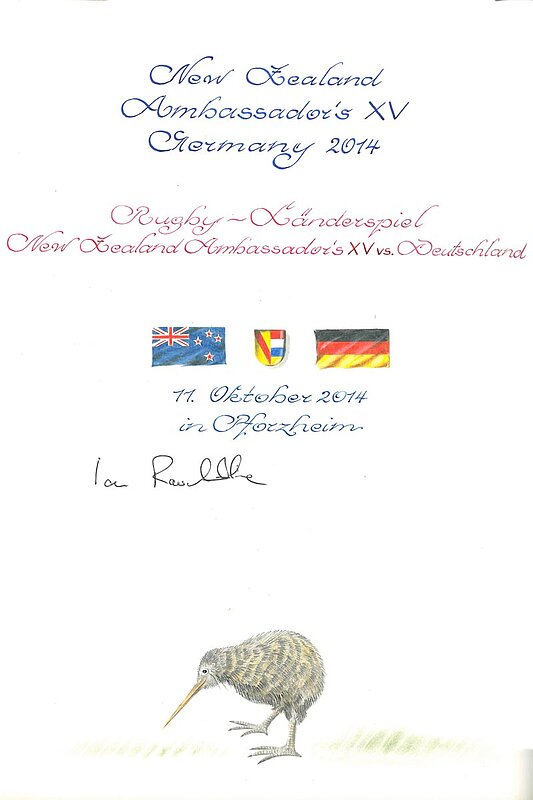 New Zealand
Ambassador's XV
Germany 2014
Rugby – Länderspiel
New Zealand Ambassador's XV vs. Deutschland
11. Oktober 2014
in Pforzheim
Ian